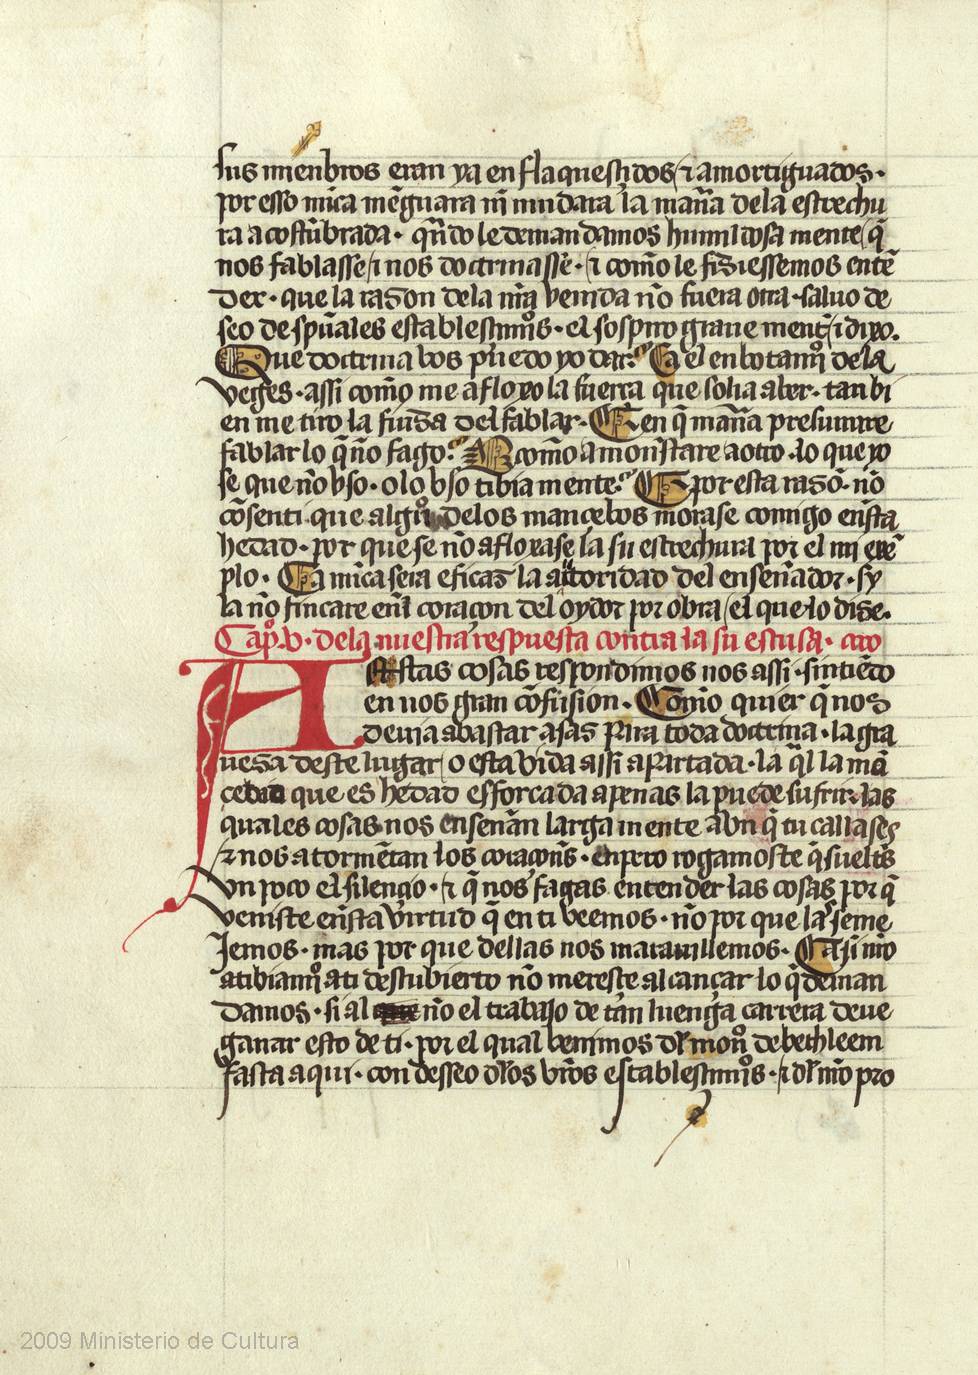 sus mienbros eran ya en flaquesçidos ⁊ amortiguados·
por esso nũca mẽguara nĩ mudara la mãña dela estrechu
ra acostũbrada· q̃ndo le demandamos humildosa mente q̃
nos fablasse ⁊ nos doctrinasse· ⁊ como le fisiessemos entẽ
der· que la rason dela nr̃a venida nõ fuera otra· saluo de
seo de sp̃uales establesçimj̃os· el sospiro graue ment̃ ⁊ dixo.
Que doctrina vos puedo yo dar? Ca el enbotamj̃o dela
veges· assi como me afloxo la fuerça que solia aber· tanbi
en me tiro la fiusa del fablar· E en q̃ mãña presumire
fablar lo q̃ nõ fago? E como amonestare a otro· lo que yo
se que nõ vso· o lo vso tibia mente? E por esta rasõ· nõ
cõsenti que algũo delos mançebos morase comigo en̄sta
hedad· por que se nõ afloxase la su estrechura por el mi exẽ
plo· Ca nũca sera eficas la actoridad del enseñador· sy
la nõ fincare en̄l coraçon del oydor por obra el que lo dise·
Cap̃o.V· dela nuestra respuesta contra la su escusa· cto
A Estas cosas respondimos nos assi· sintiẽdo
en nos gran cõfusion· Como quier q̃ nos
deuia abastar asas para toda doctrina· la gra
uesa deste lugar o esta vida assi apartada· la q̃l la mã
çebia que es hedad esforçada apenas la puede sufrir· las
quales cosas nos enseñan larga mente abn q̃ tu callases
⁊ nos atormẽtan los coraçon̄s· enpero rogamoste q̃ sueltes
vn poco el silençio· ⁊ q̃ nos fagas entender las cosas por q̃
veniste en̄sta virtud q̃ en ti veemos· nõ por que las seme
jemos· mas por que dellas nos marauillemos· Ca si nr̃o
atibiamj̃o a ti descubierto nõ meresçe alcançar lo q̃ deman
damos· si al nõ el trabajo de tan luenga carrera deue
ganar esto de ti· por el qual benimos dl̃ moñ de bethleem
fasta aqui· con desseo dl̃os vr̃os establesçimj̃os· ⁊ dl̃ nr̃o pro
2009 Ministerio de Cultura